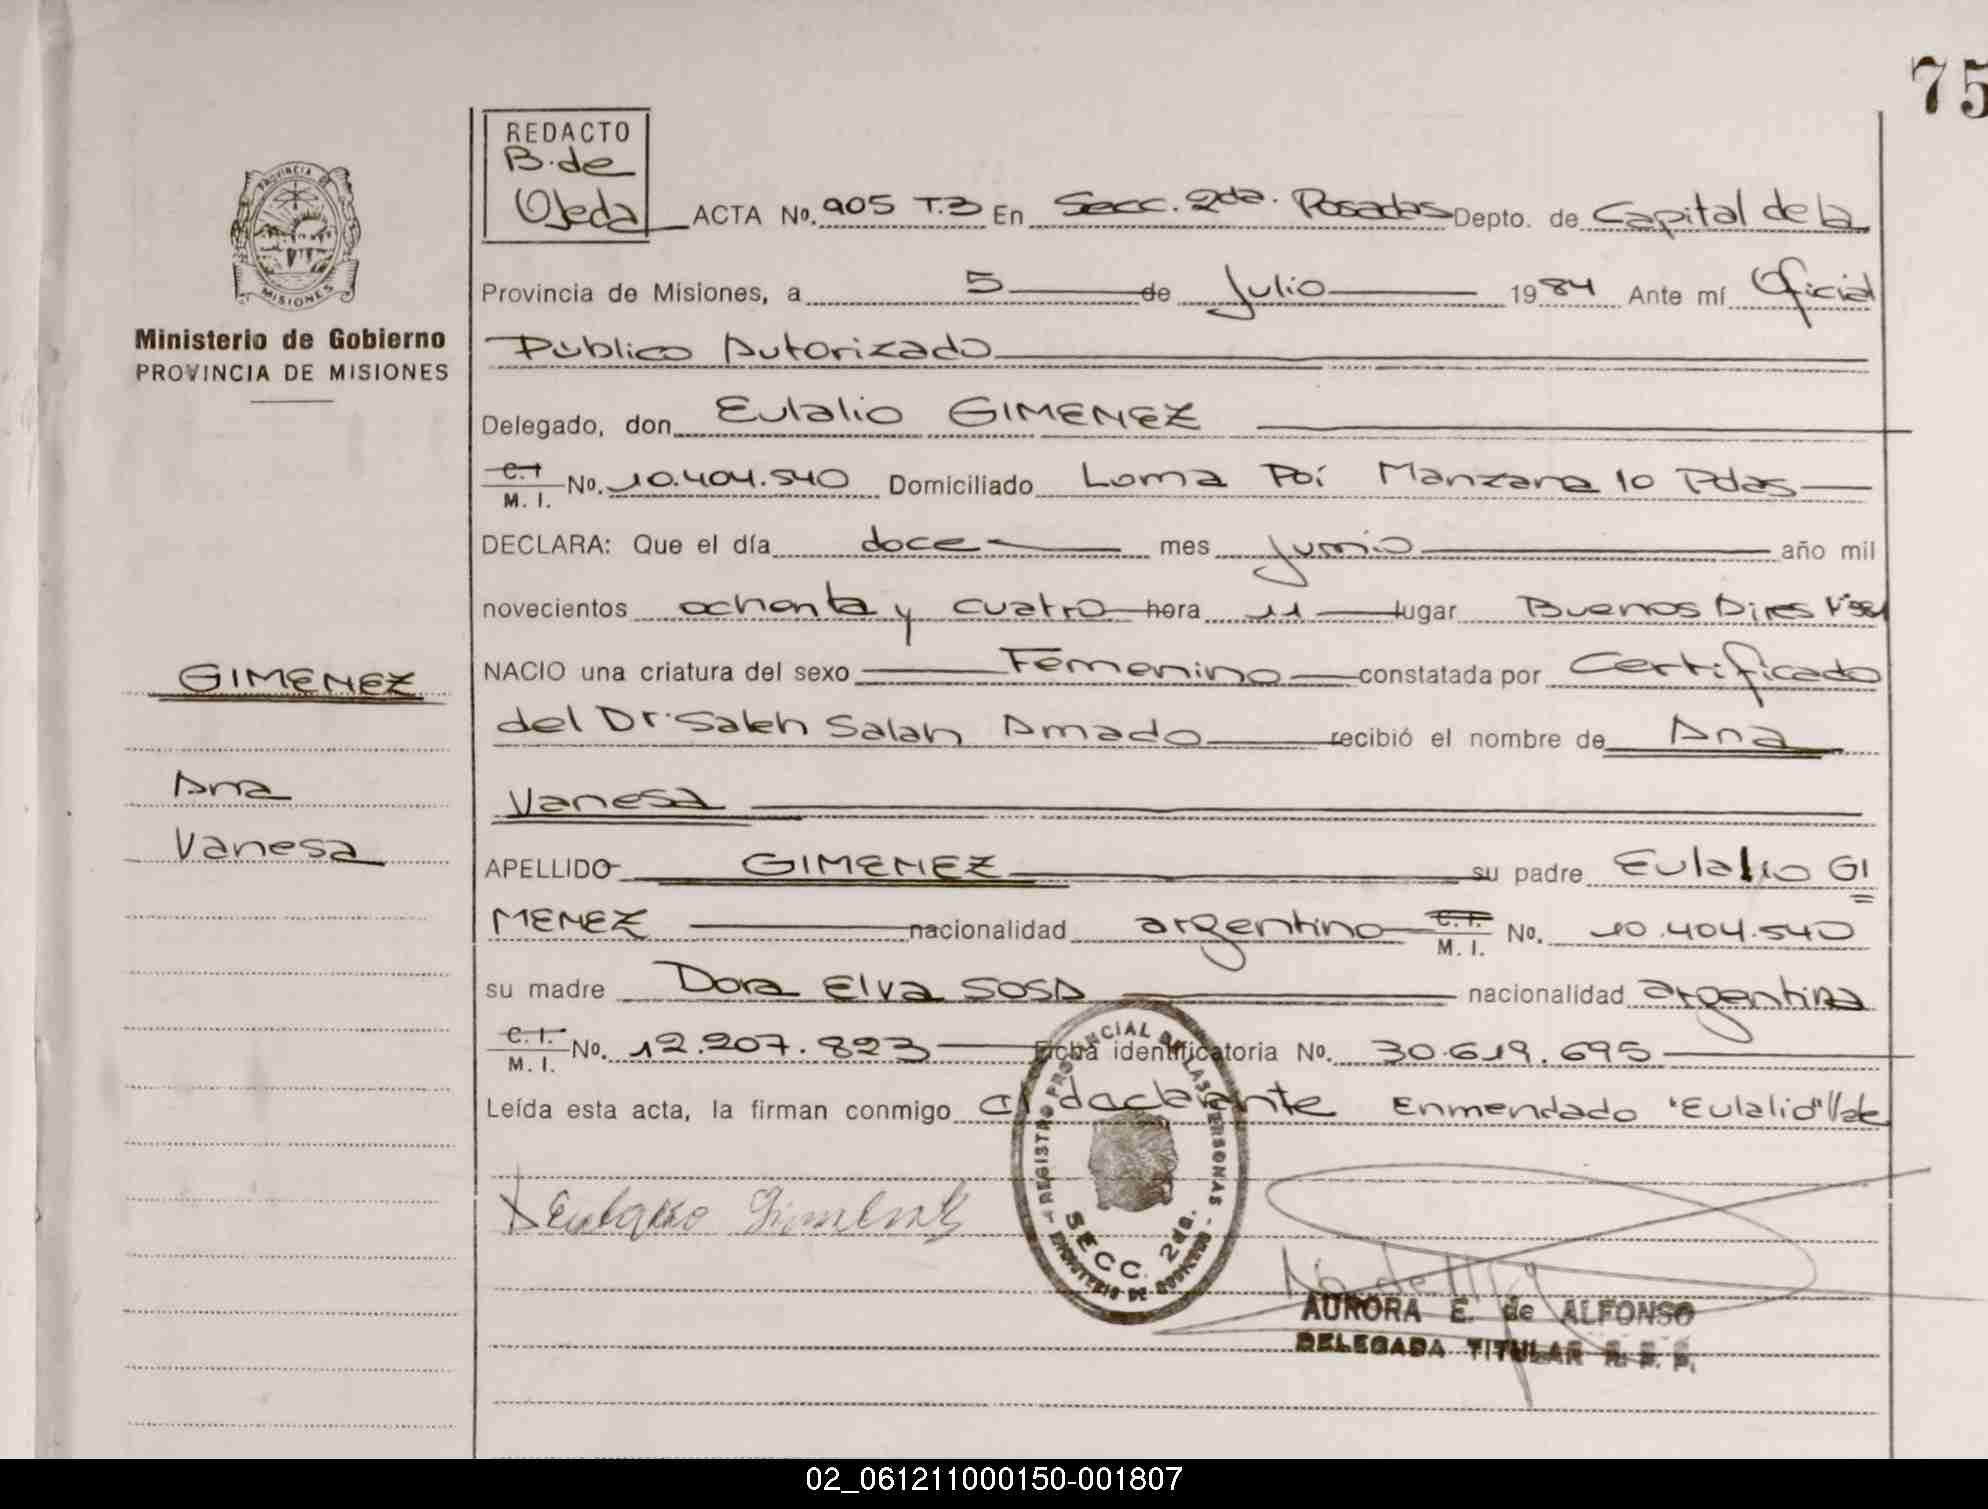 75
REDACTO
B. de
Ojeda
ACTA No. 905 T.3 En Secc. 2da. Posadas Depto. de Capital de la
PROVINCIA DE
MISIONES
Provincia de Misiones, a 5 de Julio 1984 Ante mí Oficial
Ministerio de Gobierno
PROVINCIA DE MISIONES
Público Autorizado
Delegado, don Eulalio GIMENEZ
C.I
M. I. No. 10.404.540 Domiciliado Loma Poí Manzana 10 Pdas
DECLARA: Que el día doce mes junio año mil
novecientos ochenta y cuatro hora 11 lugar Buenos Aires
NACIO una criatura del sexo Femenino constatada por Certificado
GIMENEZ
del Dr. Saleh Salah Amado recibió el nombre de Ana
Ana
Vanesa
Vanesa
APELLIDO GIMENEZ su padre Eulalio GI
MENEZ nacionalidad argentino C. I.
M. I. No. 10.404.540
su madre Dora Elva SOSA nacionalidad argentina
C. I.
M. I. No. 12.207.823 Ficha identificatoria No. 30.619.695
Leída esta acta, la firman conmigo el declarante Enmendado "Eulalio" Vale
REGISTRO PROVINCIAL DE LAS PERSONAS
SECC. 2da.
MINISTERIO DE GOBIERNO
Eulalio Gimenez
AURORA E. de ALFONSO
DELEGADA TITULAR
02_061211000150-001807